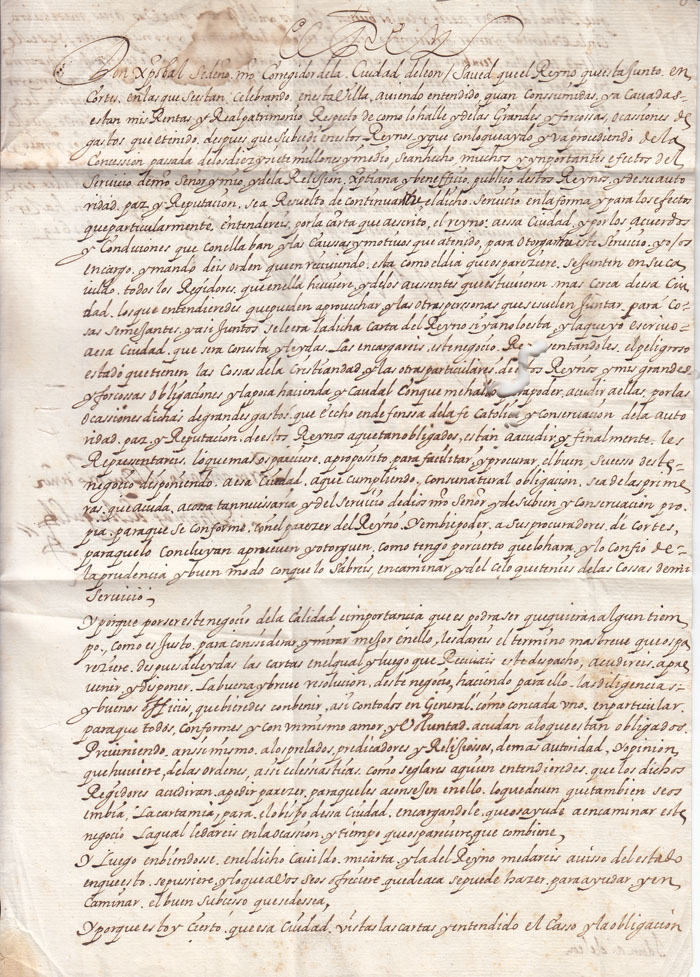 El Rey
Don Xpōbal sedeno. mo Corregidor dela. Ciudad deleon / Saued quel Reyno questa Junto. en
Cortes. en las que sestan. Celebrando. en esta Villa. auiendo entendido quan Conssumidas, y acauadas
estan mis Rentas y Real patrimonio Respeto de como lo halle y delas Grandes y forcossas, ocassiones de
gastos que etenido. despues que subcedi en estos Reynos, y que con lo que ayudo y va procediendo de la
Concession pasada de los diez y siete millones y medio, sean hecho muchos y ynportantes efectos del
Seruicio de nro Señor y mio y de la Religion. Xptiana y beneffiçio. publico destos Reynos, y de su auto
ridad. paz y Reputacion. se a Resuelto de continuarme el dicho. Seruicio en la forma y para los efectos
que particularmente. entendereis. por la carta que a escrito. el reyno: a essa Ciudad, y por los acuerdos
y Condiciones que con ella ban y las Causas y motiuos que atenido, para otorgarme este Seruicio. yo, os
encargo, y mando deis orden que en reciuiendo. esta como el dia que os pareziere. se junten en su ca
uildo. todos los Regidores, que en ella huuiere, y de los ausentes que estuuieren mas cerca de essa Ciu
dad, los que entendieredes que pueden aprouechar y las otras personas que se suelen Juntar, para co
sas semejantes, y asi Juntos se leera la dicha Carta del Reyno si ya no lo esta, y la que yo escriuo
a essa Ciudad. que sera con esta y leydas. Las encargareis. este negocio. Representandoles. el peligroso
estado que tienen las Cossas dela Cristiandad, y las otras particulares. destos Reynos y mis grandes
y forcossas obligaçiones y la poca hacienda y Caudal Con que me hallo, para poder, acudir a ellas, por las
ocassiones dichas de grandes gastos. que e echo en defenssa de la fe Catolica y conseruacion de la auto
ridad. paz, y Reputacion. de estos Reynos a que tan obligados, estan a acudir y finalmente. les
Representareis. lo que mas os pareciere. aproposito. para faclitar, y procurar, el buen, sucesso deste
negocio disponiendo. a essa Ciudad, a que cumpliendo, con su natural obligacion. sea de las prime
ras. que acuda, a cosa tan necesaria, y del seruicio. de dios nro Señor y de su bien y conseruaciõn pro
pia, para que se conforme con el parezer del Reyno. y embie poder, a sus procuradores de cortes,
para que lo Concluyan aprueuen y otorguen, como tengo por cierto que lo hara, y lo confio de
la prudencia y buen modo con que lo sabreis, encaminar, y del celo que teneis de las Cossas de mi
seruicio,
y porque por ser este negocio de la Calidad e importancia que es podra ser que quieran algun tiem
po., como es Justo. para considerar, y mirar mejor en ello, les dareis el termino mas breue que os pa
reziere. despues de leydas las cartas en el qual y luego que Reciuais este despacho, acudireis, a pre
uenir, y disponer. La buena y breue resoluçion. deste negocio, haciendo para ello. las diligencias
y buenos officios, que bieredes conbenir, asi con todos en General, como con cada vno. en particular.
para que todos, conformes y con vn mismo amor, y Voluntad. acudan a lo que estan obligados.
Preuiniendo. anssi mismo. a los prelados, predicadores y Religiosos, de mas autoridad, y opinion
que huuiere, de las ordenes, assi eclesiasticas. como seglares a quien entendieredes. que los dichos
Regidores acudiran. a pedir parezer, para que les aconsejen en ello. lo que deuen que tambien se os
embia, La carta mia, para, el obispo dessa Ciudad. encargandole. que os ayude, a encaminar este
negocio La qual le dareis en la ocassion, y tiempo que os pareciere, que combiene,
y Luego en biendosse. en el dicho Cauildo. mi carta, y la del Reyno me dareis auisso del estado
en que esto. se pussiere, y lo que a Vos se os ofreciere que de aca se puede hazer. para ayudar, y en
Caminar. el buen Subcesso que se dessea,
y porque estoy cierto. que essa Ciudad. vistas las cartas y entendido el Casso y la obligaciõn